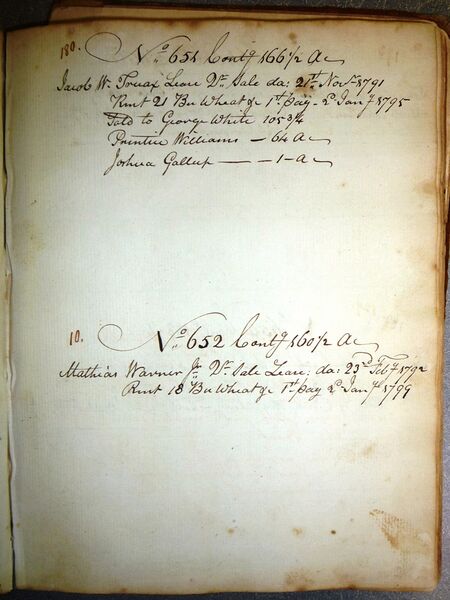 180.
No. 651 Contg 166 1/2 Ac
Jacob W. Truax Lease Dr. Sale da: 21st Novr. 1791
Rent 21 Bu Wheat &c 1st pay 2d Jany 1795
Sold to George White 105 3/4
Prentice Williams — 64 Ac
Joshua Gallup — — 1 — Ac
10.
No. 652 Contg 160 1/2 Ac
Mathias Warner Jr. Dr. Sale Lease da: 23rd Feby 1792
Rent 18 Bu Wheat &c 1st pay 2d Jany 1799